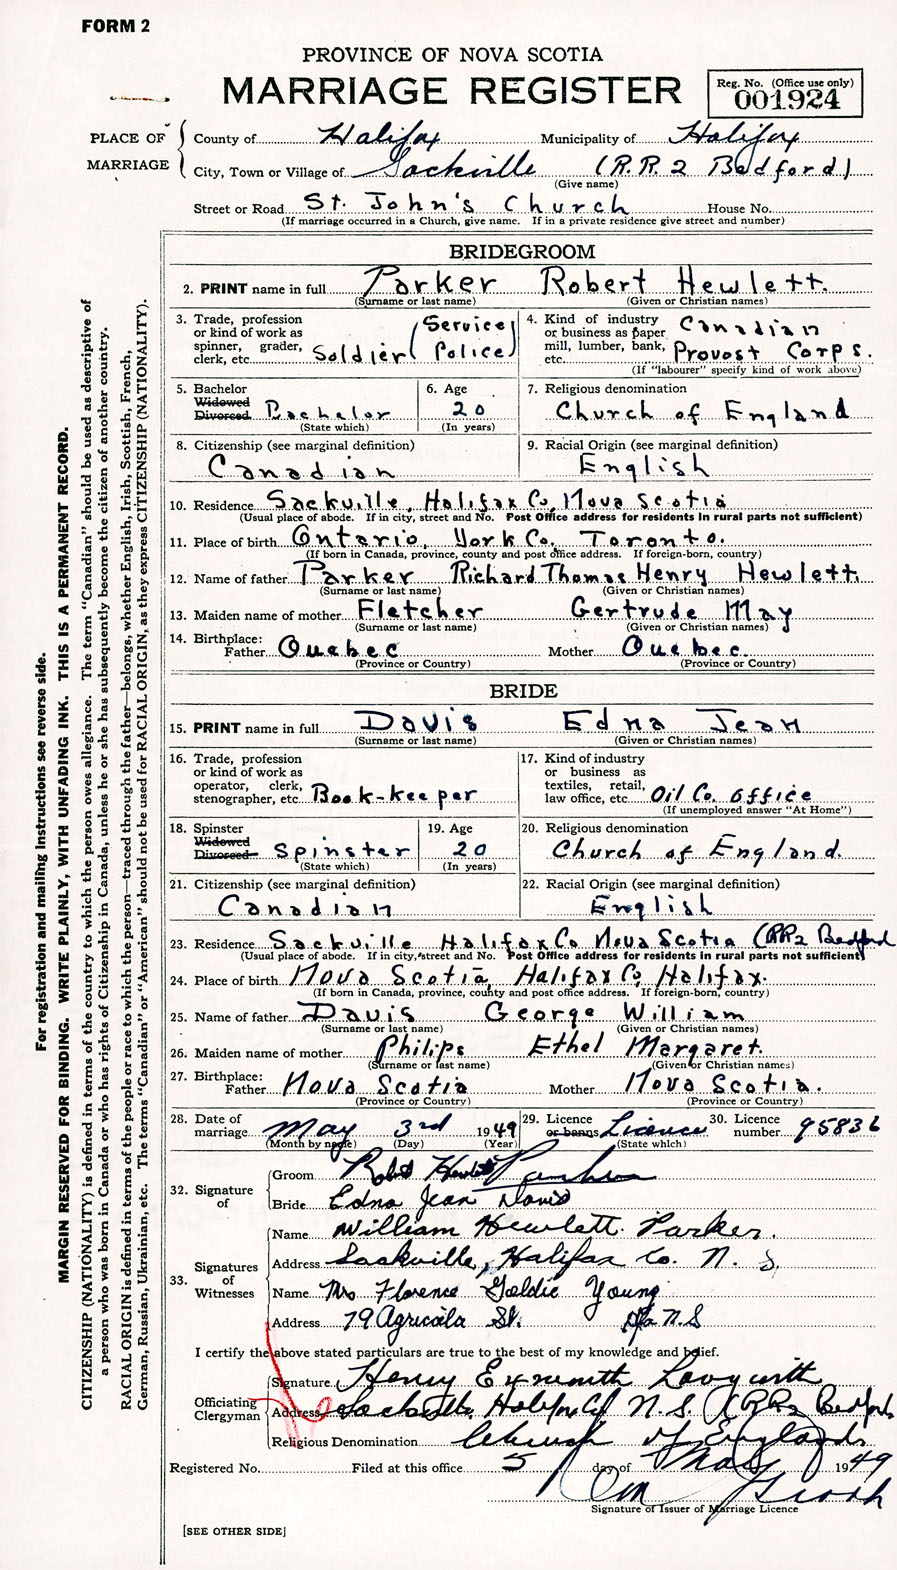 FORM 2
PROVINCE OF NOVA SCOTIA
MARRIAGE REGISTER
Reg. No. (Office use only)
001924
PLACE OF MARRIAGE
County of Halifax Municipality of Halifax
City, Town or Village of Sackville (R.R. 2 Bedford)
(Give name)
Street or Road St. John's Church House No.
(If marriage occurred in a Church, give name. If in a private residence give street and number)
BRIDEGROOM
2. PRINT name in full Parker Robert Hewlett.
(Surname or last name) (Given or Christian names)
3. Trade, profession or kind of work as spinner, grader, clerk, etc. Soldier (Service Police)
4. Kind of industry or business as paper mill, lumber, bank, etc. Canadian Provost Corps.
(If "labourer" specify kind of work above)
5. Bachelor Widowed Divorced Bachelor
(State which)
6. Age 20
(In years)
7. Religious denomination
Church of England
8. Citizenship (see marginal definition)
Canadian
9. Racial Origin (see marginal definition)
English
10. Residence Sackville, Halifax Co, Nova Scotia
(Usual place of abode. If in city, street and No. Post Office address for residents in rural parts not sufficient)
11. Place of birth Ontario, York Co. Toronto.
(If born in Canada, province, county and post office address. If foreign-born, country)
12. Name of father Parker Richard Thomas Henry Hewlett.
(Surname or last name) (Given or Christian names)
13. Maiden name of mother Fletcher Gertrude May
(Surname or last name) (Given or Christian names)
14. Birthplace: Father Quebec Mother Quebec.
(Province or Country) (Province or Country)
BRIDE
15. PRINT name in full Davis Edna Jean
(Surname or last name) (Given or Christian names)
16. Trade, profession or kind of work as operator, clerk, stenographer, etc. Book-keeper
17. Kind of industry or business as textiles, retail, law office, etc. Oil Co. Office
(If unemployed answer "At Home")
18. Spinster Widowed Divorced Spinster
(State which)
19. Age 20
(In years)
20. Religious denomination
Church of England.
21. Citizenship (see marginal definition)
Canadian
22. Racial Origin (see marginal definition)
English
23. Residence Sackville Halifax Co Nova Scotia (RR2 Bedford
(Usual place of abode. If in city, street and No. Post Office address for residents in rural parts not sufficient)
24. Place of birth Nova Scotia, Halifax Co, Halifax.
(If born in Canada, province, county and post office address. If foreign-born, country)
25. Name of father Davis George William
(Surname or last name) (Given or Christian names)
26. Maiden name of mother Philips Ethel Margaret.
(Surname or last name) (Given or Christian names)
27. Birthplace: Father Nova Scotia Mother Nova Scotia.
(Province or Country) (Province or Country)
28. Date of marriage May 3rd 1949
(Month by name) (Day) (Year)
29. Licence or banns Licence
(State which)
30. Licence number 95836
32. Signature of
Groom Robt Hewlett Parker
Bride Edna Jean Davis
33. Signatures of Witnesses
Name William Hewlett Parker.
Address Sackville, Halifax Co. N. S.
Name Mrs Florence Goldie Young
Address 79 Agricola St. Hfx N.S
I certify the above stated particulars are true to the best of my knowledge and belief.
Officiating Clergyman
Signature Henry
Address Sackville, Halifax Co N.S. (RR2 Bedford
Religious Denomination Church of England
Registered No. Filed at this office 5 day of May 1949
Signature of Issuer of Marriage Licence
[SEE OTHER SIDE]
For registration and mailing instructions see reverse side.
MARGIN RESERVED FOR BINDING. WRITE PLAINLY, WITH UNFADING INK. THIS IS A PERMANENT RECORD.
CITIZENSHIP (NATIONALITY) is defined in terms of the country to which the person owes allegiance. The term "Canadian" should be used as descriptive of
a person who was born in Canada or who has rights of Citizenship in Canada, unless he or she has subsequently become the citizen of another country.
RACIAL ORIGIN is defined in terms of the people or race to which the person—traced through the father—belongs, whether English, Irish, Scottish, French,
German, Russian, Ukrainian, etc. The terms "Canadian" or "American" should not be used for RACIAL ORIGIN, as they express CITIZENSHIP (NATIONALITY).